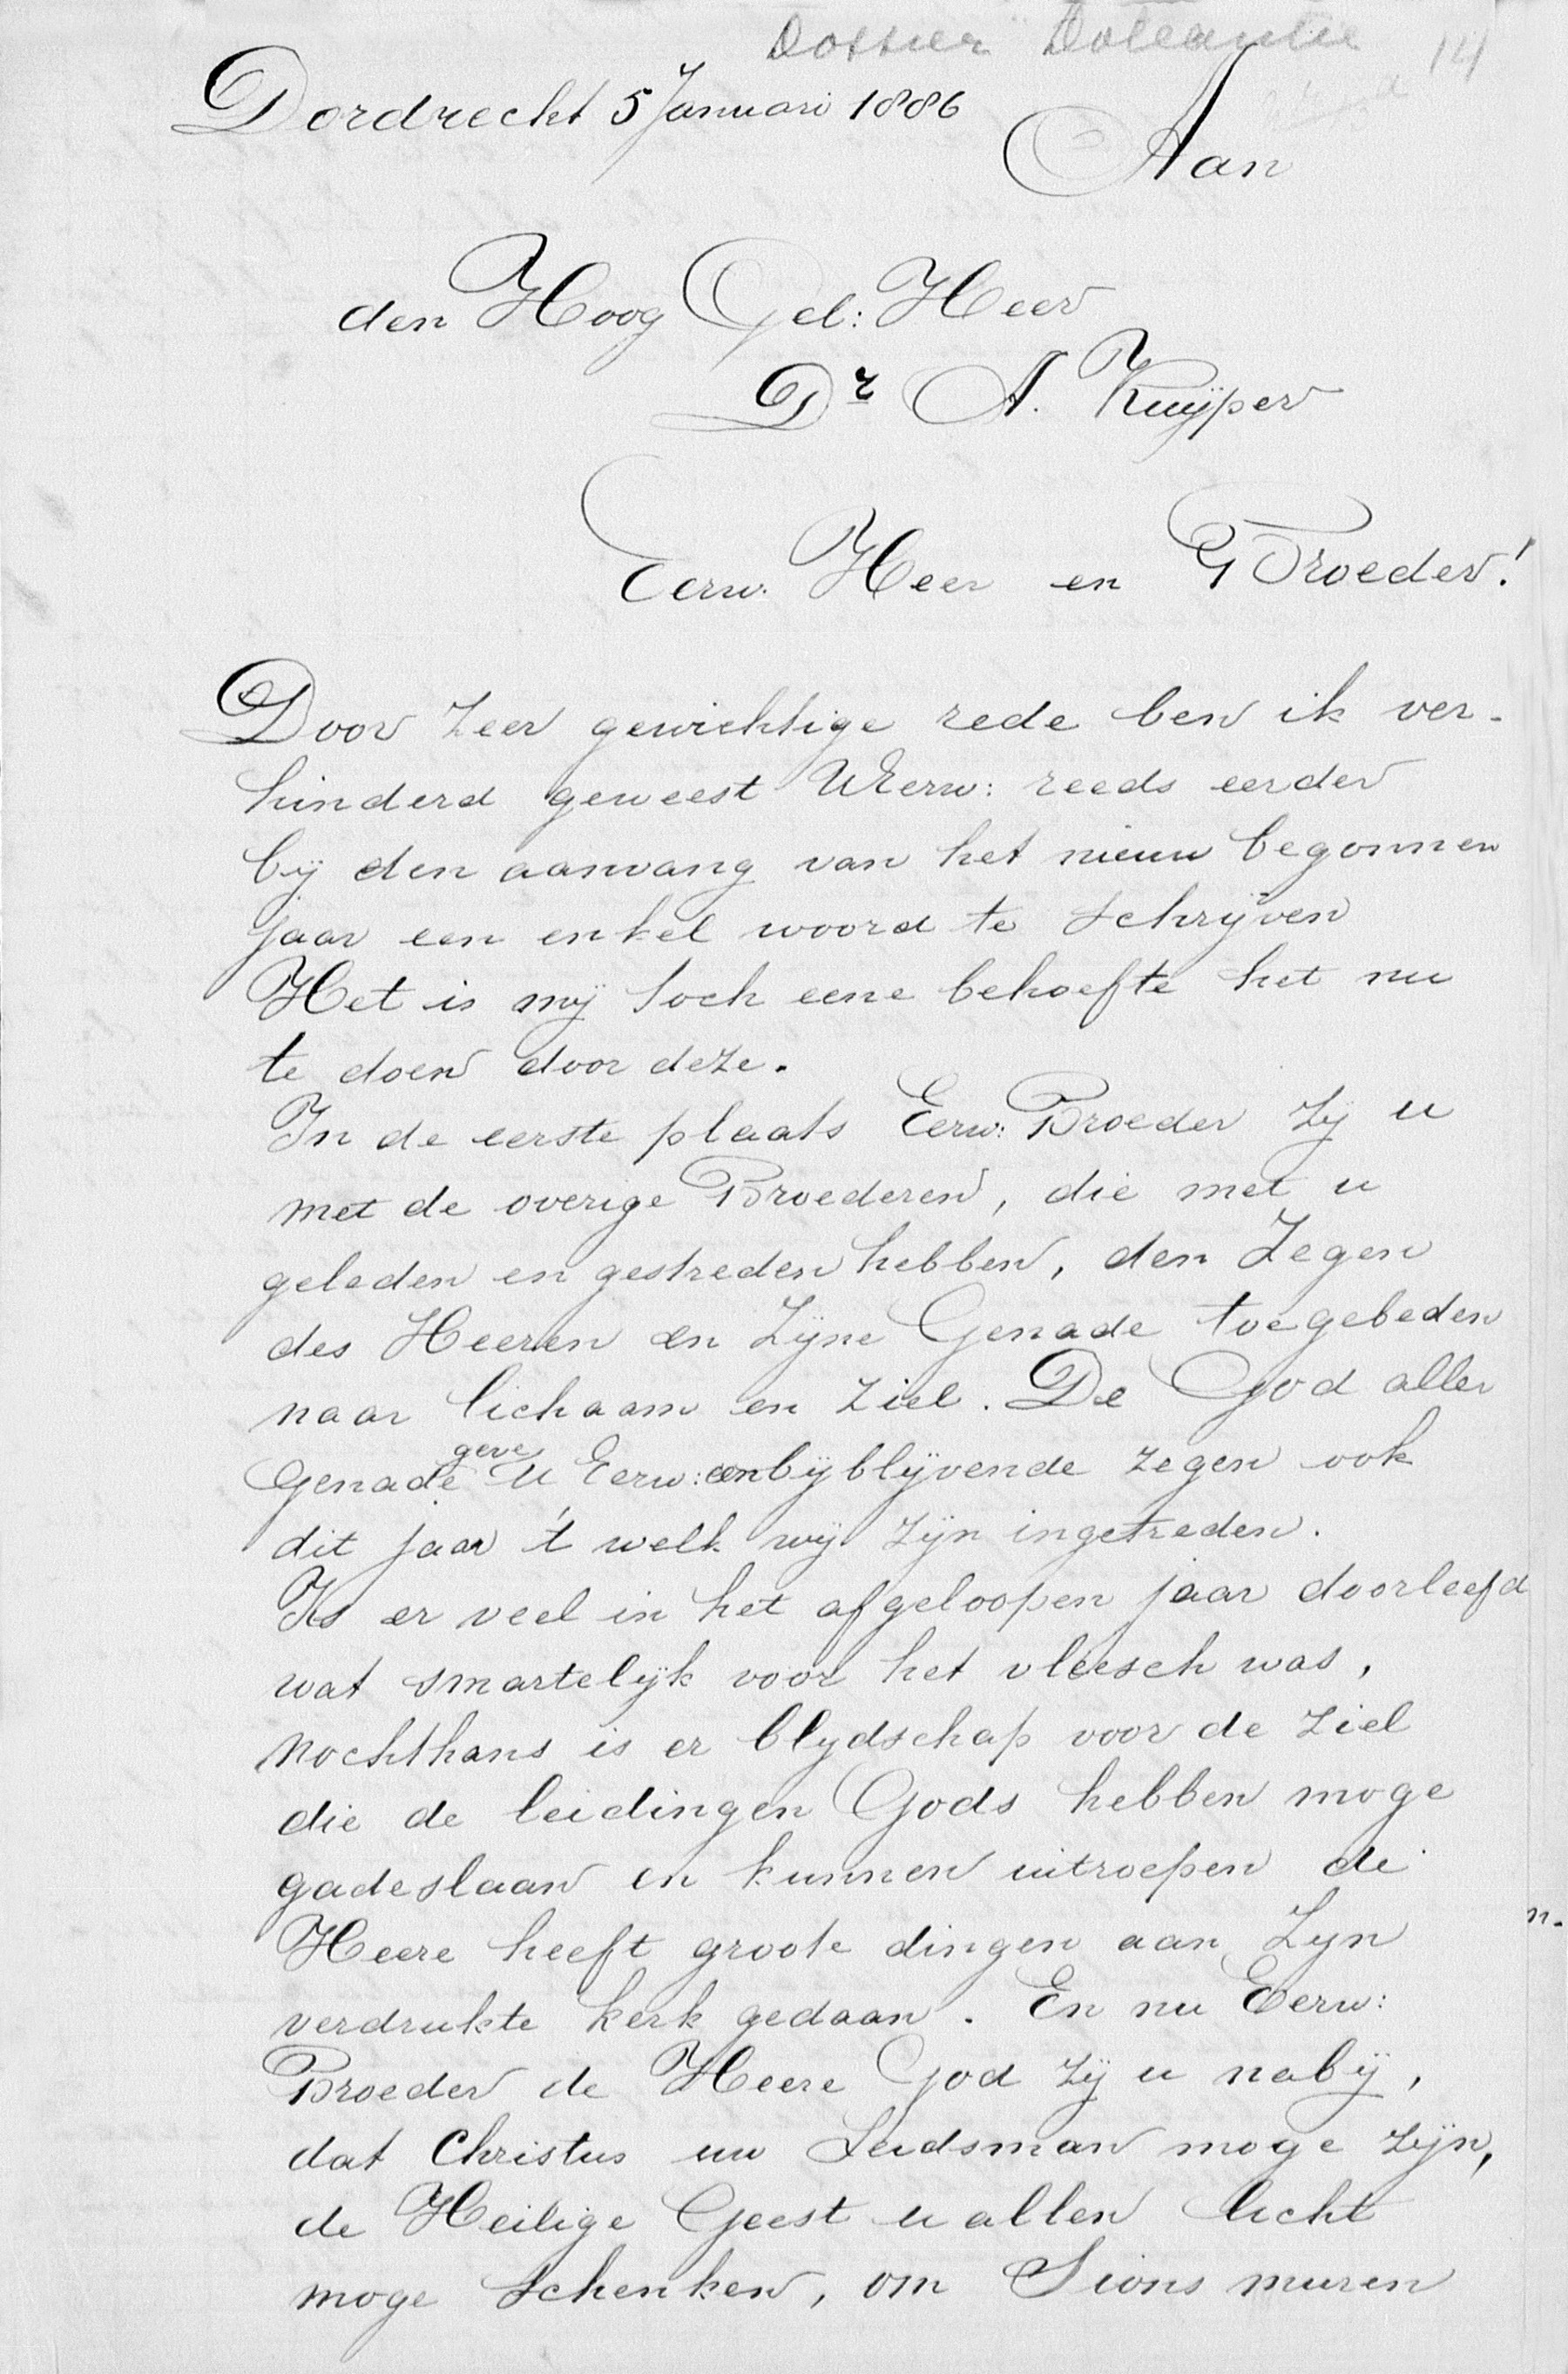 Dossier Doleantie 14
Dordrecht 5 Januari 1886
Aan
den Hoog Gel: Heer
Dr A. Kuÿper
Eerw. Heer en Broeder!
Door zeer gewichtige rede ben ik ver-
hinderd geweest UEerw: reeds eerder
bÿ den aanvang van het nieuw begonnen
jaar een enkel woord te schrÿven
Het is mÿ toch eene behoefte het nu
te doen door deze.
In de eerste plaats Eerw: Broeder zÿ u
met de overige Broederen, die met u
geleden en gestreden hebben, den Zegen
des Heeren en Zÿne Genade toegebeden
naar lichaam en ziel. De God aller
Genade geve U Eerw: een bÿblÿvende zegen ook
dit jaar 't welk wÿ zÿn ingetreden.
Is er veel in het afgeloopen jaar doorleefd
wat smartelÿk voor het vleesch was,
nochthans is er blydschap voor de ziel
die de leidingen Gods hebben moge
gadeslaan en kunnen uitroepen de
Heere heeft groote dingen aan Zyn
n.
verdrukte kerk gedaan. En nu Eerw:
Broeder de Heere God zÿ u nabÿ,
dat Christus uw Leidsman moge zÿn,
de Heilige Geest u allen licht
moge schenken, om Sions muren